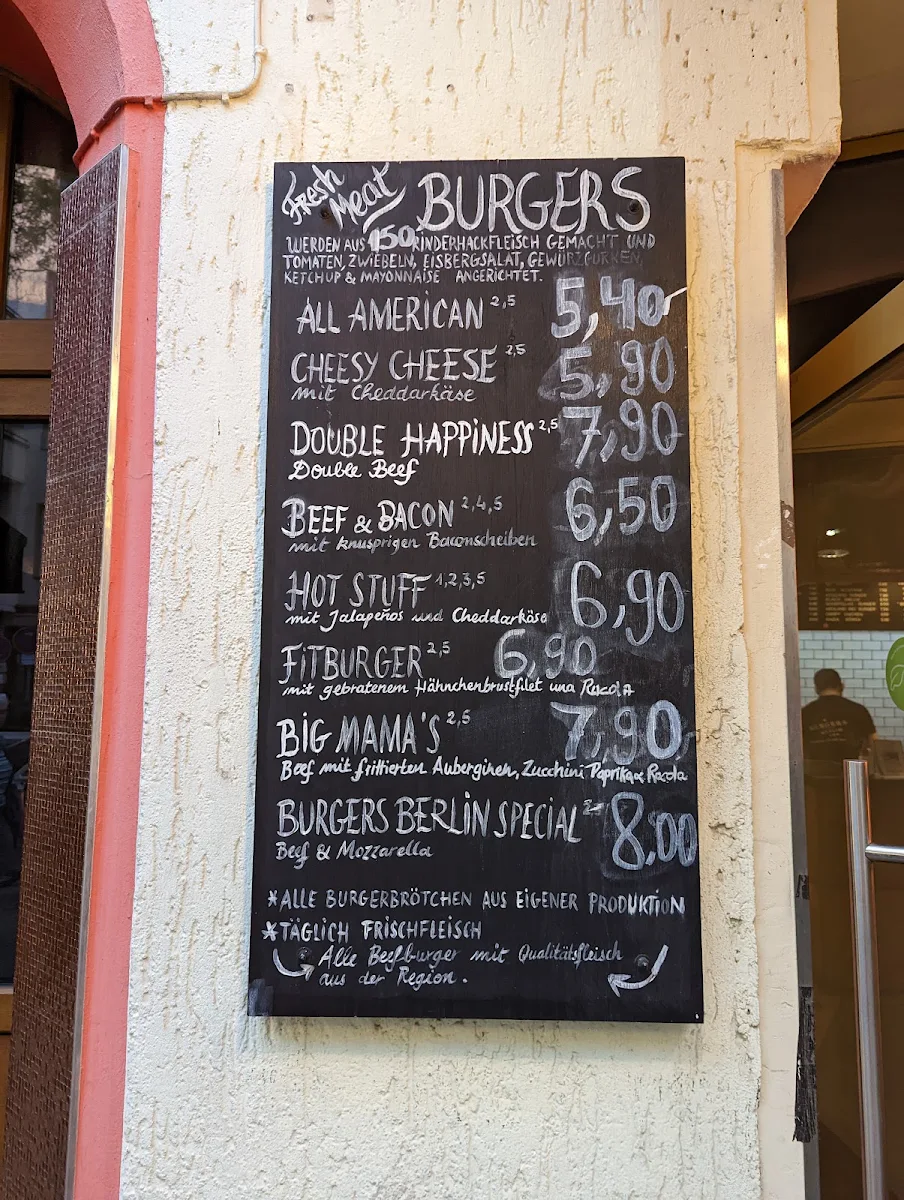 Fresh Meat BURGERS
WERDEN AUS 150 RINDERHACKFLEISCH GEMACHT UND
TOMATEN, ZWIEBELN, EISBERGSALAT, GEWÜRZGURKEN,
KETCHUP & MAYONNAISE ANGERICHTET.
ALL AMERICAN 2,5 5,40
CHEESY CHEESE 2,5 5,90
mit Cheddarkäse
DOUBLE HAPPINESS 2,5 7,90
Double Beef
BEEF & BACON 2,4,5 6,50
mit knusprigen Baconscheiben
HOT STUFF 1,2,3,5 6,90
mit Jalapeños und Cheddarkäse
FITBURGER 2,5 6,90
mit gebratenem Hähnchenbrustfilet und Rucola
BIG MAMA'S 2,5 7,90
Beef mit frittierten Auberginen, Zucchini Paprika & Rucola
BURGERS BERLIN SPECIAL 8,00
Beef & Mozzarella
*ALLE BURGERBRÖTCHEN AUS EIGENER PRODUKTION
*TÄGLICH FRISCHFLEISCH
Alle Beefburger mit Qualitätsfleisch
aus der Region.